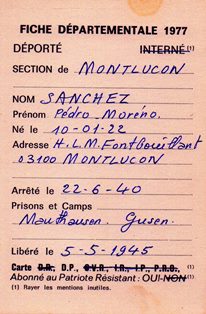 FICHE DÉPARTEMENTALE 1977
DÉPORTÉ INTERNÉ (1)
SECTION de MONTLUCON
NOM SANCHEZ
Prénom Pédro Moréno.
Né le 10-01-22
Adresse H.L.M. Fontbouillant
03100 MONTLUCON
Arrêté le 22-6-40
Prisons et Camps
Mauthausen. Gusen.
Libéré le 5-5-1945
Carte D.R., D.P., C.V.R., I.R., I.P., P.R.O., (1)
Abonné au Patriote Résistant : OUI-NON (1)
(1) Rayer les mentions inutiles.